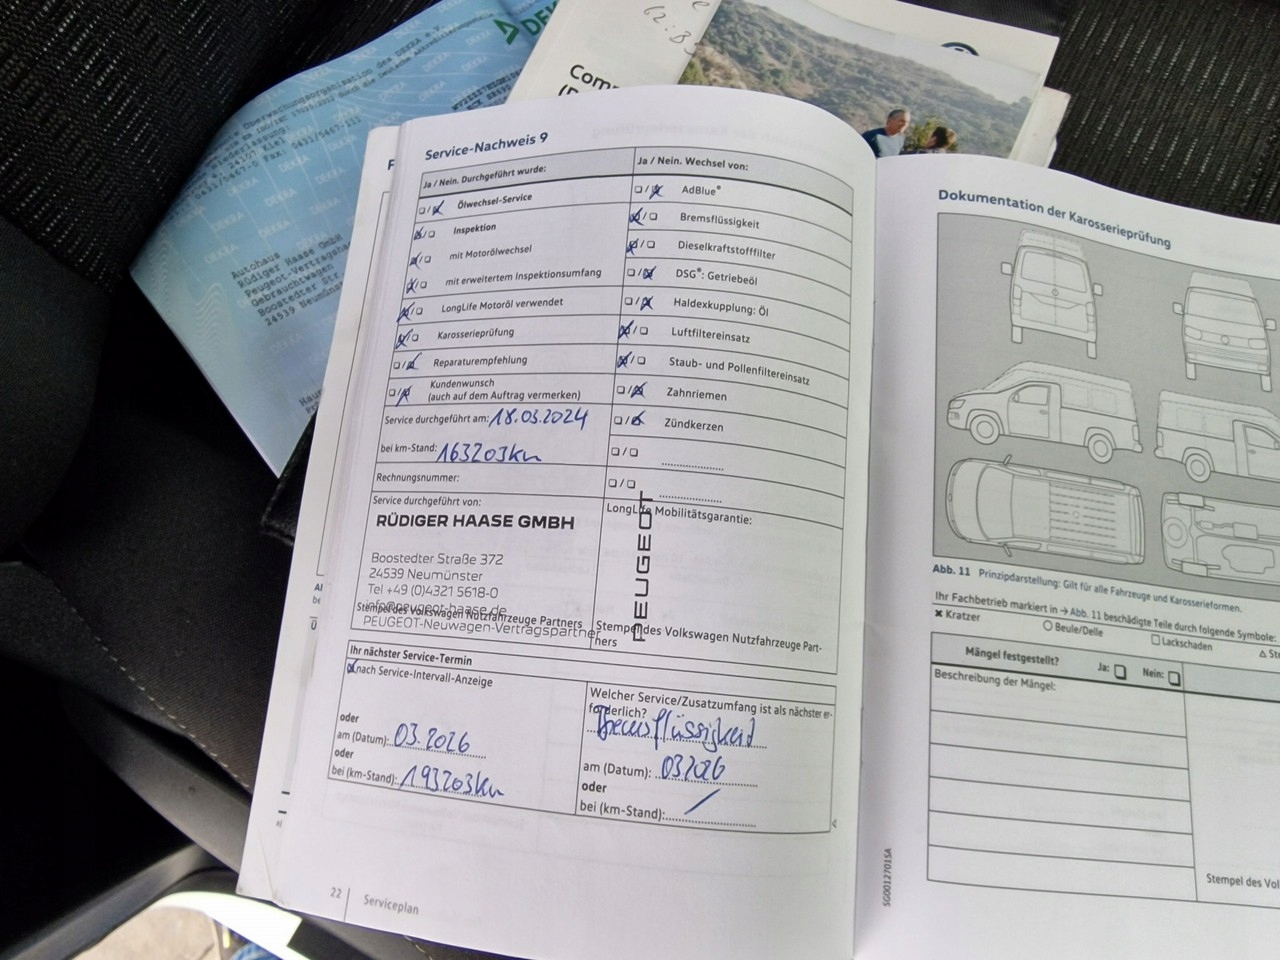 DEKRA
Überwachungsorganisation des DEKRA e.V.
Autohaus
Rüdiger Haase GmbH
Peugeot-Vertragshä
Gebrauchtwagen
Boostedter Str.
24539 Neumüns
62.8
Service-Nachweis 9
Ja / Nein. Durchgeführt wurde:
Ölwechsel-Service
Inspektion
mit Motorölwechsel
mit erweitertem Inspektionsumfang
LongLife Motoröl verwendet
Karosserieprüfung
Reparaturempfehlung
Kundenwunsch
(auch auf dem Auftrag vermerken)
Service durchgeführt am: 18.03.2024
bei km-Stand: 163203km
Rechnungsnummer:
Service durchgeführt von:
RÜDIGER HAASE GMBH
Boostedter Straße 372
24539 Neumünster
Tel +49 (0)4321 5618-0
info@peugeot-haase.de
Stempel des Volkswagen Nutzfahrzeuge Partners
PEUGEOT-Neuwagen-Vertragspartner
Ja / Nein. Wechsel von:
AdBlue®
Bremsflüssigkeit
Dieselkraftstofffilter
DSG®: Getriebeöl
Haldexkupplung: Öl
Luftfiltereinsatz
Staub- und Pollenfiltereinsatz
Zahnriemen
Zündkerzen
LongLife Mobilitätsgarantie:
PEUGEOT
Stempel des Volkswagen Nutzfahrzeuge Part-
ners
Ihr nächster Service-Termin
nach Service-Intervall-Anzeige
oder
am (Datum): 03.2026
oder
bei (km-Stand): 193203km
Welcher Service/Zusatzumfang ist als nächster er-
forderlich?
Bremsflüssigkeit
am (Datum): 03 2026
oder
bei (km-Stand): /
22 Serviceplan
Dokumentation der Karosserieprüfung
Abb. 11 Prinzipdarstellung: Gilt für alle Fahrzeuge und Karosserieformen.
Ihr Fachbetrieb markiert in → Abb. 11 beschädigte Teile durch folgende Symbole:
Kratzer
Beule/Delle
Lackschaden
Mängel festgestellt?
Ja:
Nein:
Beschreibung der Mängel:
Stempel des Vol
SG0012701SA